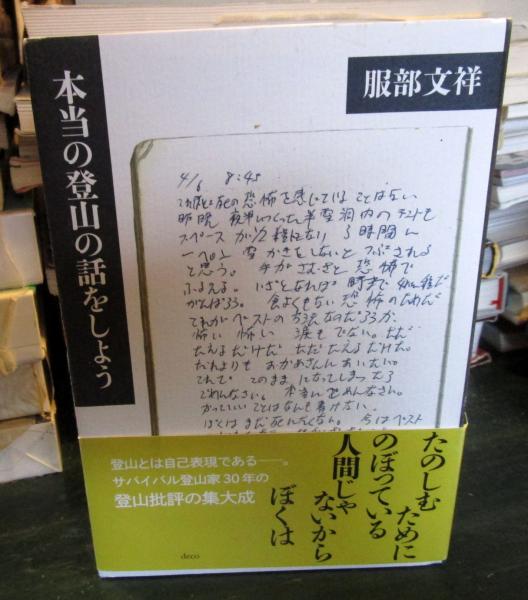 本当の登山の話をしよう
服部文祥
4/6 8:45
これほど死の恐怖を感じていることはない
昨晩 夜半につくった半雪洞内のテントも
スペースが1/2程になり 3時間に
一ぺん 雪かきをしないと つぶされる
と思う。手がさむさと恐怖で
ふるえる。いざとなれば
がんばろう。食よくもない 恐怖のためだ
これがベストの方法なのだろうか
怖い 怖い 涙もでない。ただ
たえるだけだ ただたえるだけだ。
だれよりも おかあさんに あいたい。
これで このままになってしまったら
ごめんなさい。本当にごめんなさい。
かっこいいことはなんも書けない
ぼくはまだ死にたくない。今はベスト
たのしむために
のぼっている
人間じゃ
ないから
ぼくは
登山とは自己表現である——。
サバイバル登山家30年の
登山批評の集大成
deco